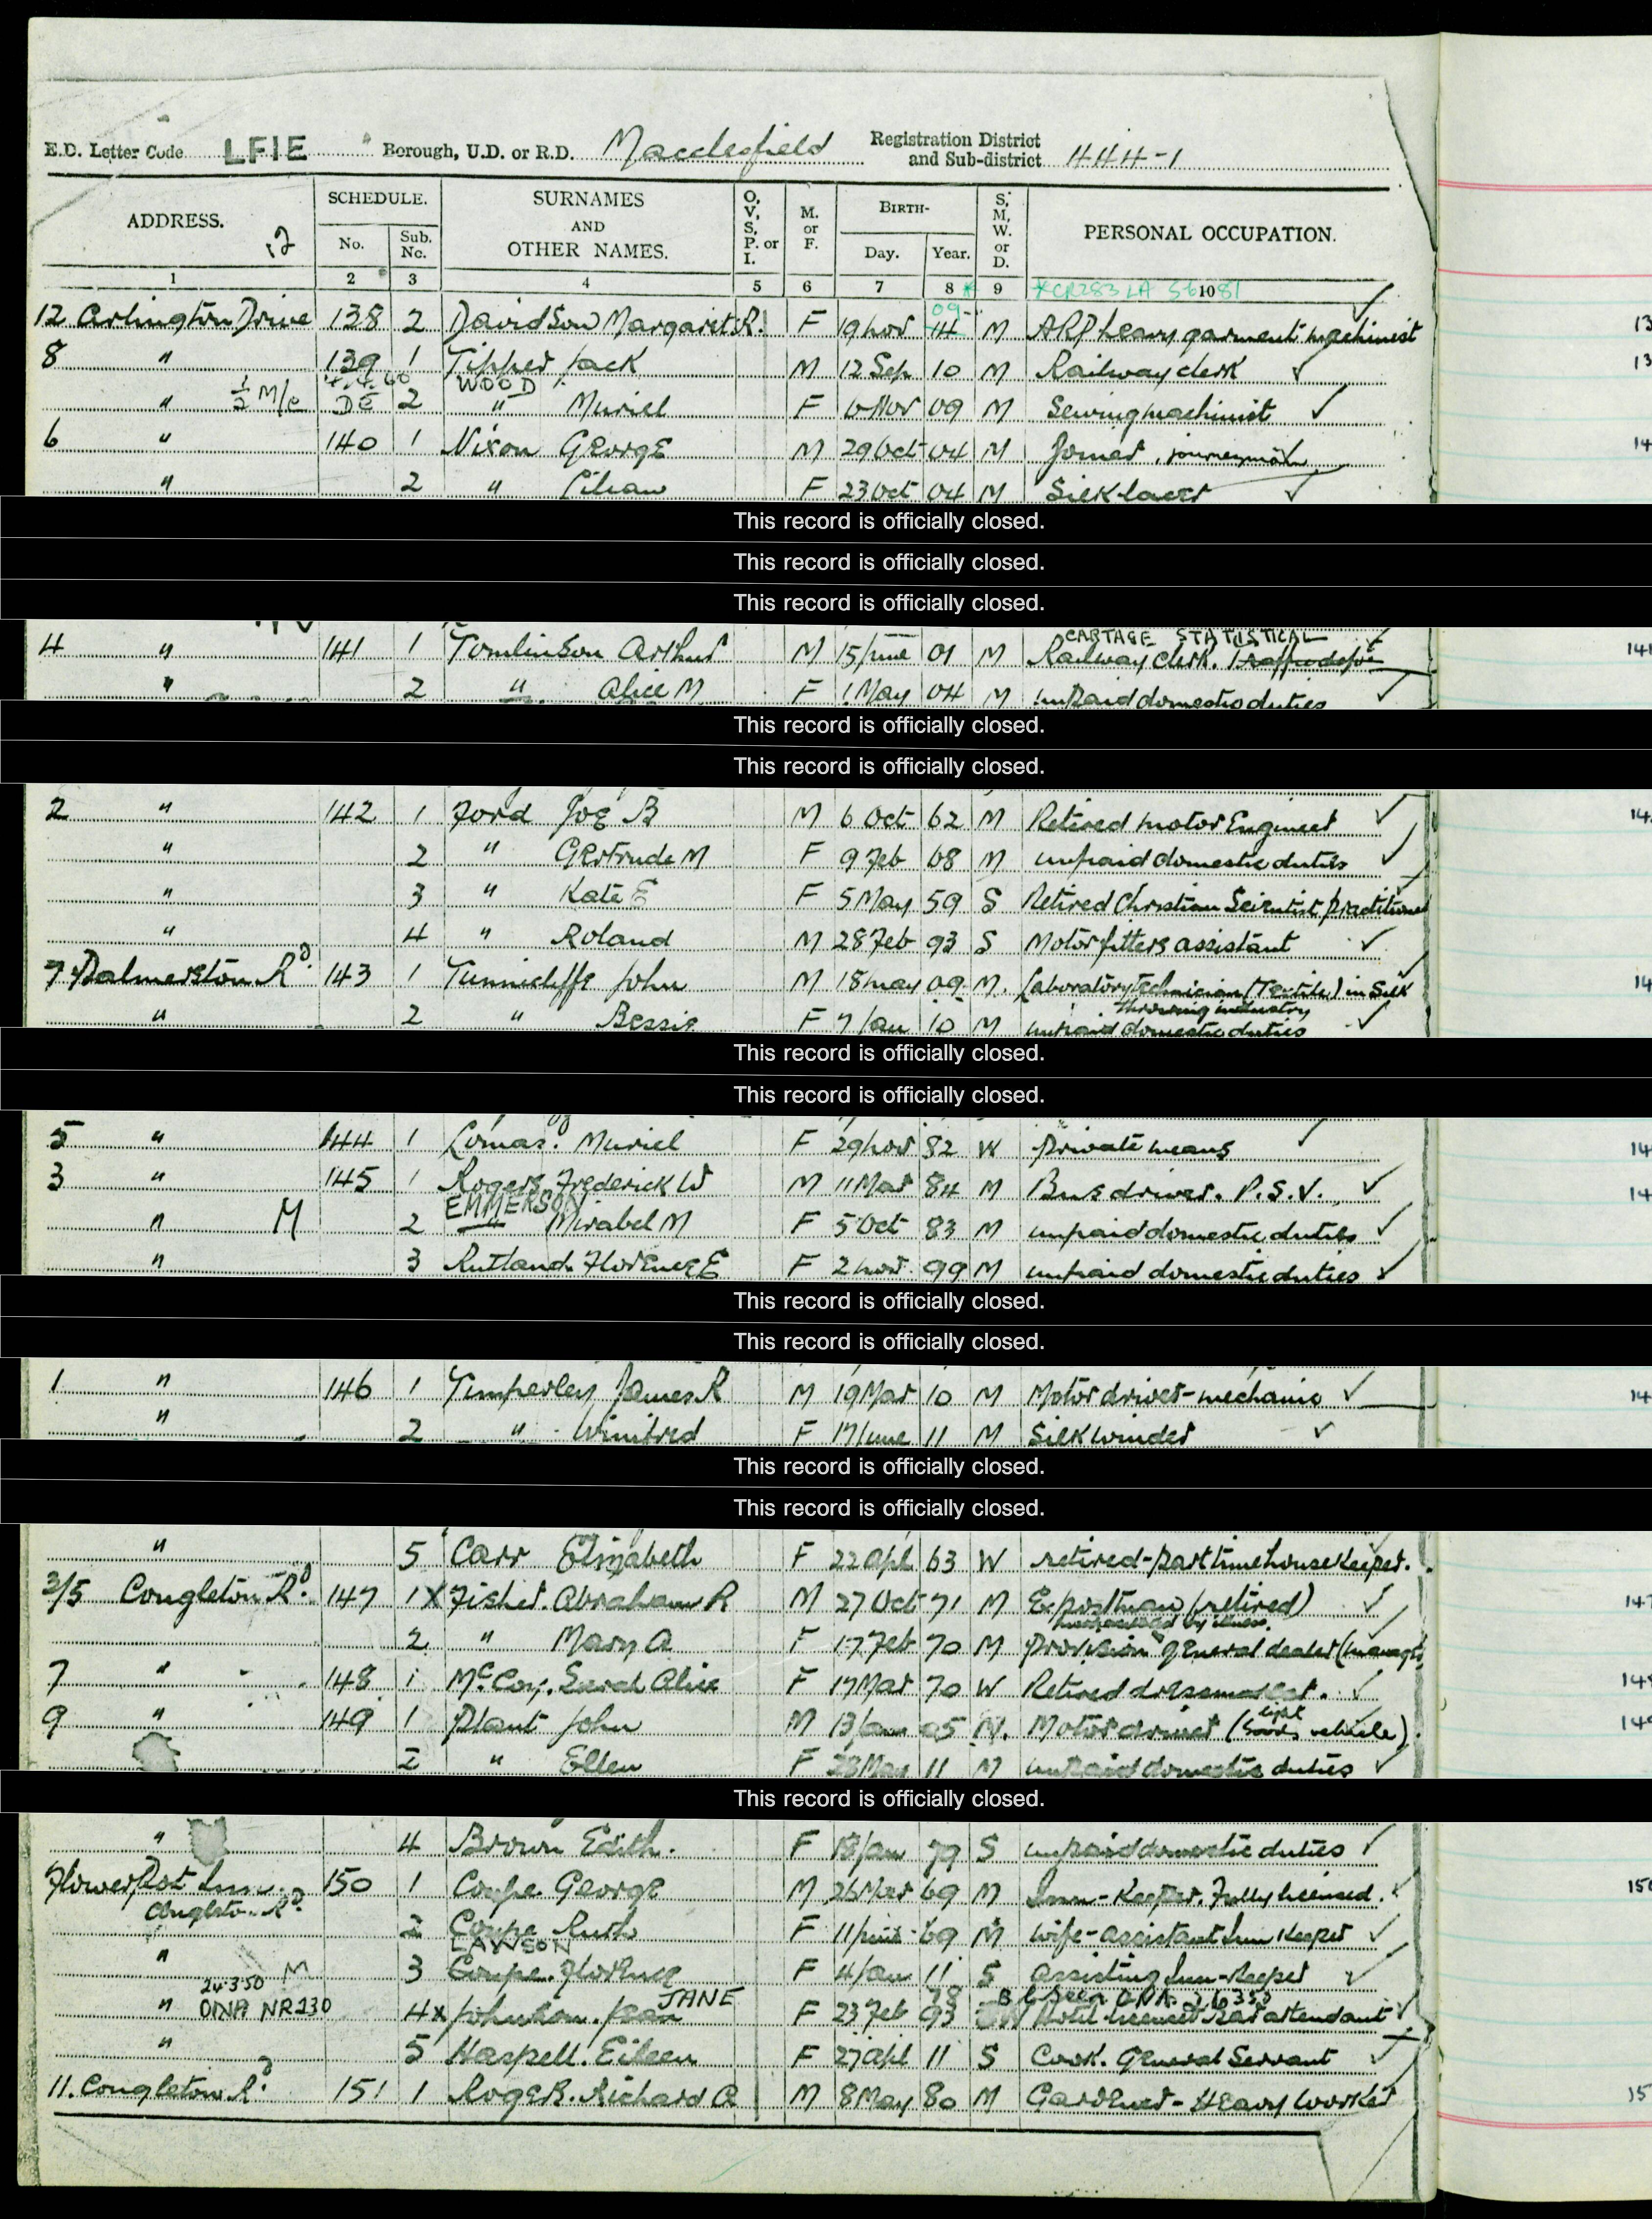 E.D. Letter Code LFIE Borough, U.D. or R.D. Macclesfield Registration District and Sub-district 444-1
ADDRESS. SCHEDULE. No. Sub. No. SURNAMES AND OTHER NAMES. O, V, S, P. or I. M. or F. BIRTH- Day. Year. S, M, W. or D. PERSONAL OCCUPATION.
12
1 2 3 4 5 6 7 8 9 10
*CR283 LA 5 6 81
09
12 Arlington Drive 138 2 Davidson Margaret R. F 19 Nov 14 M ARP heavy garment machinist
8 " 139 1 Tipper Jack M 12 Sep 10 M Railway clerk
4.4.40 WOOD
" ½ M/c DE 2 " Muriel F 10 Nov 09 M Sewing machinist
6 " 140 1 Nixon George M 29 Oct 04 M Joiner, journeyman
" 2 " Lilian F 23 Oct 04 M Silk lacer
This record is officially closed.
This record is officially closed.
This record is officially closed.
CARTAGE STATISTICAL
4 " 141 1 Tomlinson Arthur M 15 June 01 M Railway Clerk.
" 2 " Alice M F 1 May 04 M unpaid domestic duties
This record is officially closed.
This record is officially closed.
2 " 142 1 Ford Joe B M 6 Oct 62 M Retired Motor Engineer
" 2 " Gertrude M F 9 Feb 68 M unpaid domestic duties
" 3 " Kate E F 5 May 59 S Retired Christian Scientist Practitioner
" 4 " Roland M 28 Feb 93 S Motor fitters assistant
7 Palmerston Rd. 143 1 Tunnicliffe John M 18 May 09 M. Laboratory technician (Textile) in Silk
throwing industry
" 2 " Bessie F 7 Jan 10 M unpaid domestic duties
This record is officially closed.
This record is officially closed.
5 " 144 1 Lomas. Muriel F 29 Nov 82 W Private means
3 " 145 1 Rogers Frederick W M 11 Mar 84 M Bus driver. P.S.V.
EMMERSON
" M 2 " Mirabel M F 5 Oct 83 M unpaid domestic duties
" 3 Rutland. Florence E F 2 Nov. 99 M unpaid domestic duties
This record is officially closed.
This record is officially closed.
1 " 146 1 Timperley James R M 19 Mar 10 M Motor driver - mechanic
" 2 " Winifred F 17 June 11 M Silk winder
This record is officially closed.
This record is officially closed.
" 5 Carr Elizabeth F 22 Apl 63 W retired - part time housekeeper.
3/5 Congleton Rd. 147 1 X Fisher. Abraham R M 27 Oct 71 M Ex postman (retired)
2 " Mary A F 17 Feb 70 M Provision & general dealer (manager)
7 " 148 1 McCoy. Sarah Alice F 17 Mar 70 W Retired dressmaker.
light
9 " 149 1 Plant John M 13 Jan 05 M. Motor driver (Goods vehicle).
2 " Ellen F 23 May 11 M unpaid domestic duties
This record is officially closed.
" 4 Brown Edith. F 18 Jan 79 S unpaid domestic duties
Flower Pot Inn. 150 1 Coupe George M 26 Mar 69 M Inn-Keeper. Fully licensed.
Congleton Rd.
2 Coupe Ruth F 11 June 69 M Wife - assistant Inn Keeper
LAWSON
" M 3 Coupe. Florence F 4 Jan 11 S assisting Inn-Keeper
24.3.50 JANE 78
" OINA NR230 4 x Johnson. Jean F 23 Feb 93 Hotel Bar attendant
" 5 Haspell. Eileen F 27 Apl 11 S Cook. General Servant
11. Congleton Rd. 151 1 Roger. Richard A M 8 May 80 M Gardener - Heavy Worker